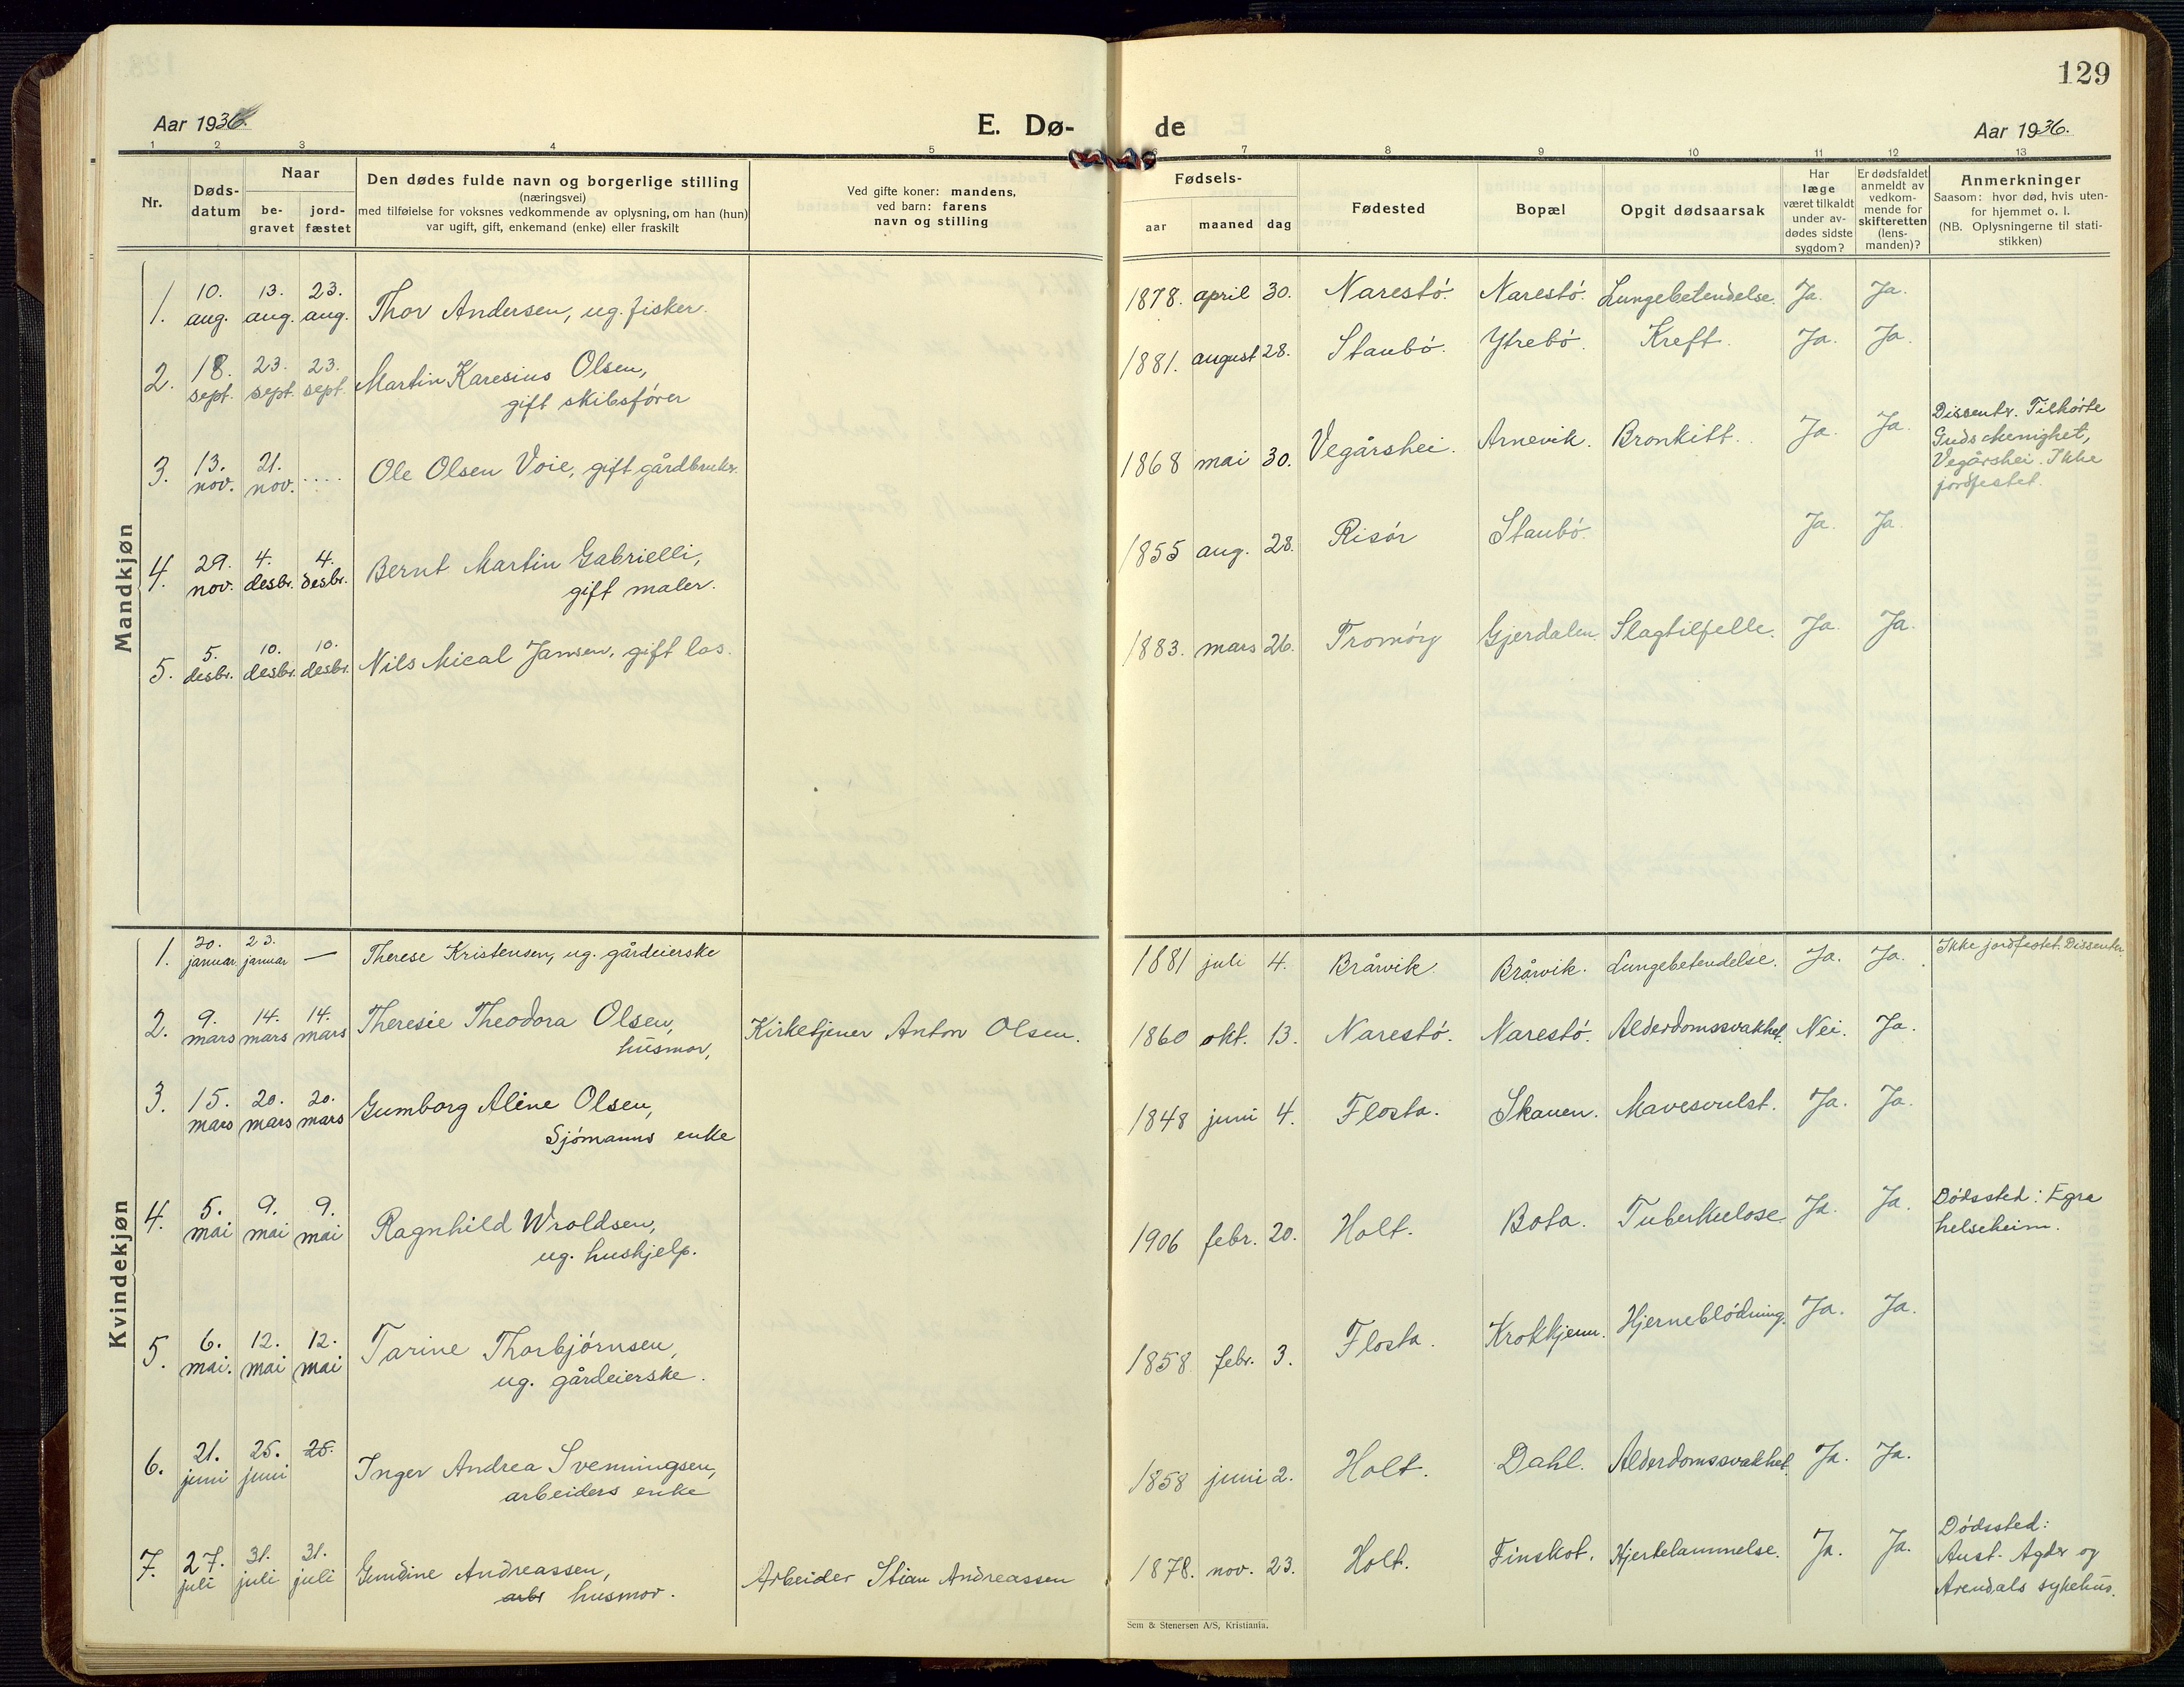 129
Aar 1936.
E. Dø-
de
Aar 1936.
1 2 3 4 5 6 7 8 9 10 11 12 13
Nr.
Døds-
datum
Naar
be-
gravet
jord-
fæstet
Den dødes fulde navn og borgerlige stilling
(næringsvei)
med tilføielse for voksnes vedkommende av oplysning, om han (hun)
var ugift, gift, enkemand (enke) eller fraskilt
Ved gifte koner: mandens,
ved barn: farens
navn og stilling
Fødsels-
aar
maaned
dag
Fødested
Bopæl
Opgit dødsaarsak
Har
læge
været tilkaldt
under av-
dødes sidste
sygdom?
Er dødsfaldet
anmeldt av
vedkom-
mende for
skifteretten
(lens-
manden)?
Anmerkninger
Saasom: hvor død, hvis uten-
for hjemmet o. l.
(NB. Oplysningerne til stati-
stikken)
Mandkjøn
1. 10. aug. 13. aug. 23. aug. Thor Andersen, ug. fisker. 1878. april 30. Narestø. Narestø. Lungebetendelse. Ja. Ja.
2. 18. sept. 23. sept. 23. sept. Martin Karesius Olsen,
gift skibsfører 1881. august 28. Staubø. Ytrebø. Kreft. Ja. Ja.
3. 13. nov. 21. nov. .... Ole Olsen Voie, gift gårdbruker. 1868 mai 30. Vegårshei. Arnevik. Bronkitt. Ja. Ja.
Dissentr. Tilhørte
Guds Menighet,
Vegårshei. Ikke
jordfestet.
4. 29. nov. 4. desbr. 4. desbr. Bernt Martin Gabrielli,
gift maler. 1855 aug. 28. Risør Staubø. Ja. Ja.
5. 5. desbr. 10. desbr. 10. desbr. Nils Mical Jansen, gift los. 1883. mars 26. Tromøy Gjerdalen Slagtilfelle. Ja. Ja.
Kvindekjøn
1. 20. januar 23. januar — Therese Kristensen, ug. gårdeierske 1881 juli 4. Bråvik. Bråvik. Lungebetendelse. Ja. Ja. Ikke jordfestet. Dissenter.
2. 9. mars 14. mars 14. mars Theresie Theodora Olsen,
husmor, Kirketjener Anton Olsen. 1860 okt. 13. Narestø. Narestø. Alderdomssvakhet. Nei. Ja.
3. 15. mars 20. mars 20. mars Gumborg Aline Olsen,
Sjømanns enke 1848 juni 4. Flosta. Skauen. Mavesvulst. Ja. Ja.
4. 5. mai 9. mai 9. mai Ragnhild Wroldsen,
ug. hushjelp. 1906 febr. 20. Holt. Bota. Tuberkulose. Ja. Ja.
Dødssted: Egra
helseheim.
5. 6. mai. 12. mai 12. mai Tarine Thorbjørnsen,
ug. gårdeierske. 1858 febr. 3. Flosta. Krokkjenn. Hjerneblødning. Ja. Ja.
6. 21. juni 25. juni 25. Inger Andrea Svenningsen,
arbeiders enke 1858 juni 2. Holt. Dahl. Alderdomssvakhet. Ja. Ja.
7. 27. juli 31. juli 31. juli Gundine Andreassen,
arbr husmor. Arbeider Stian Andreassen 1878. nov. 23. Holt. Finskot. Hjertelammelse. Ja. Ja.
Dødssted:
Aust-Agder og
Arendals sykehus.
Sem & Stenersen A/S, Kristiania.